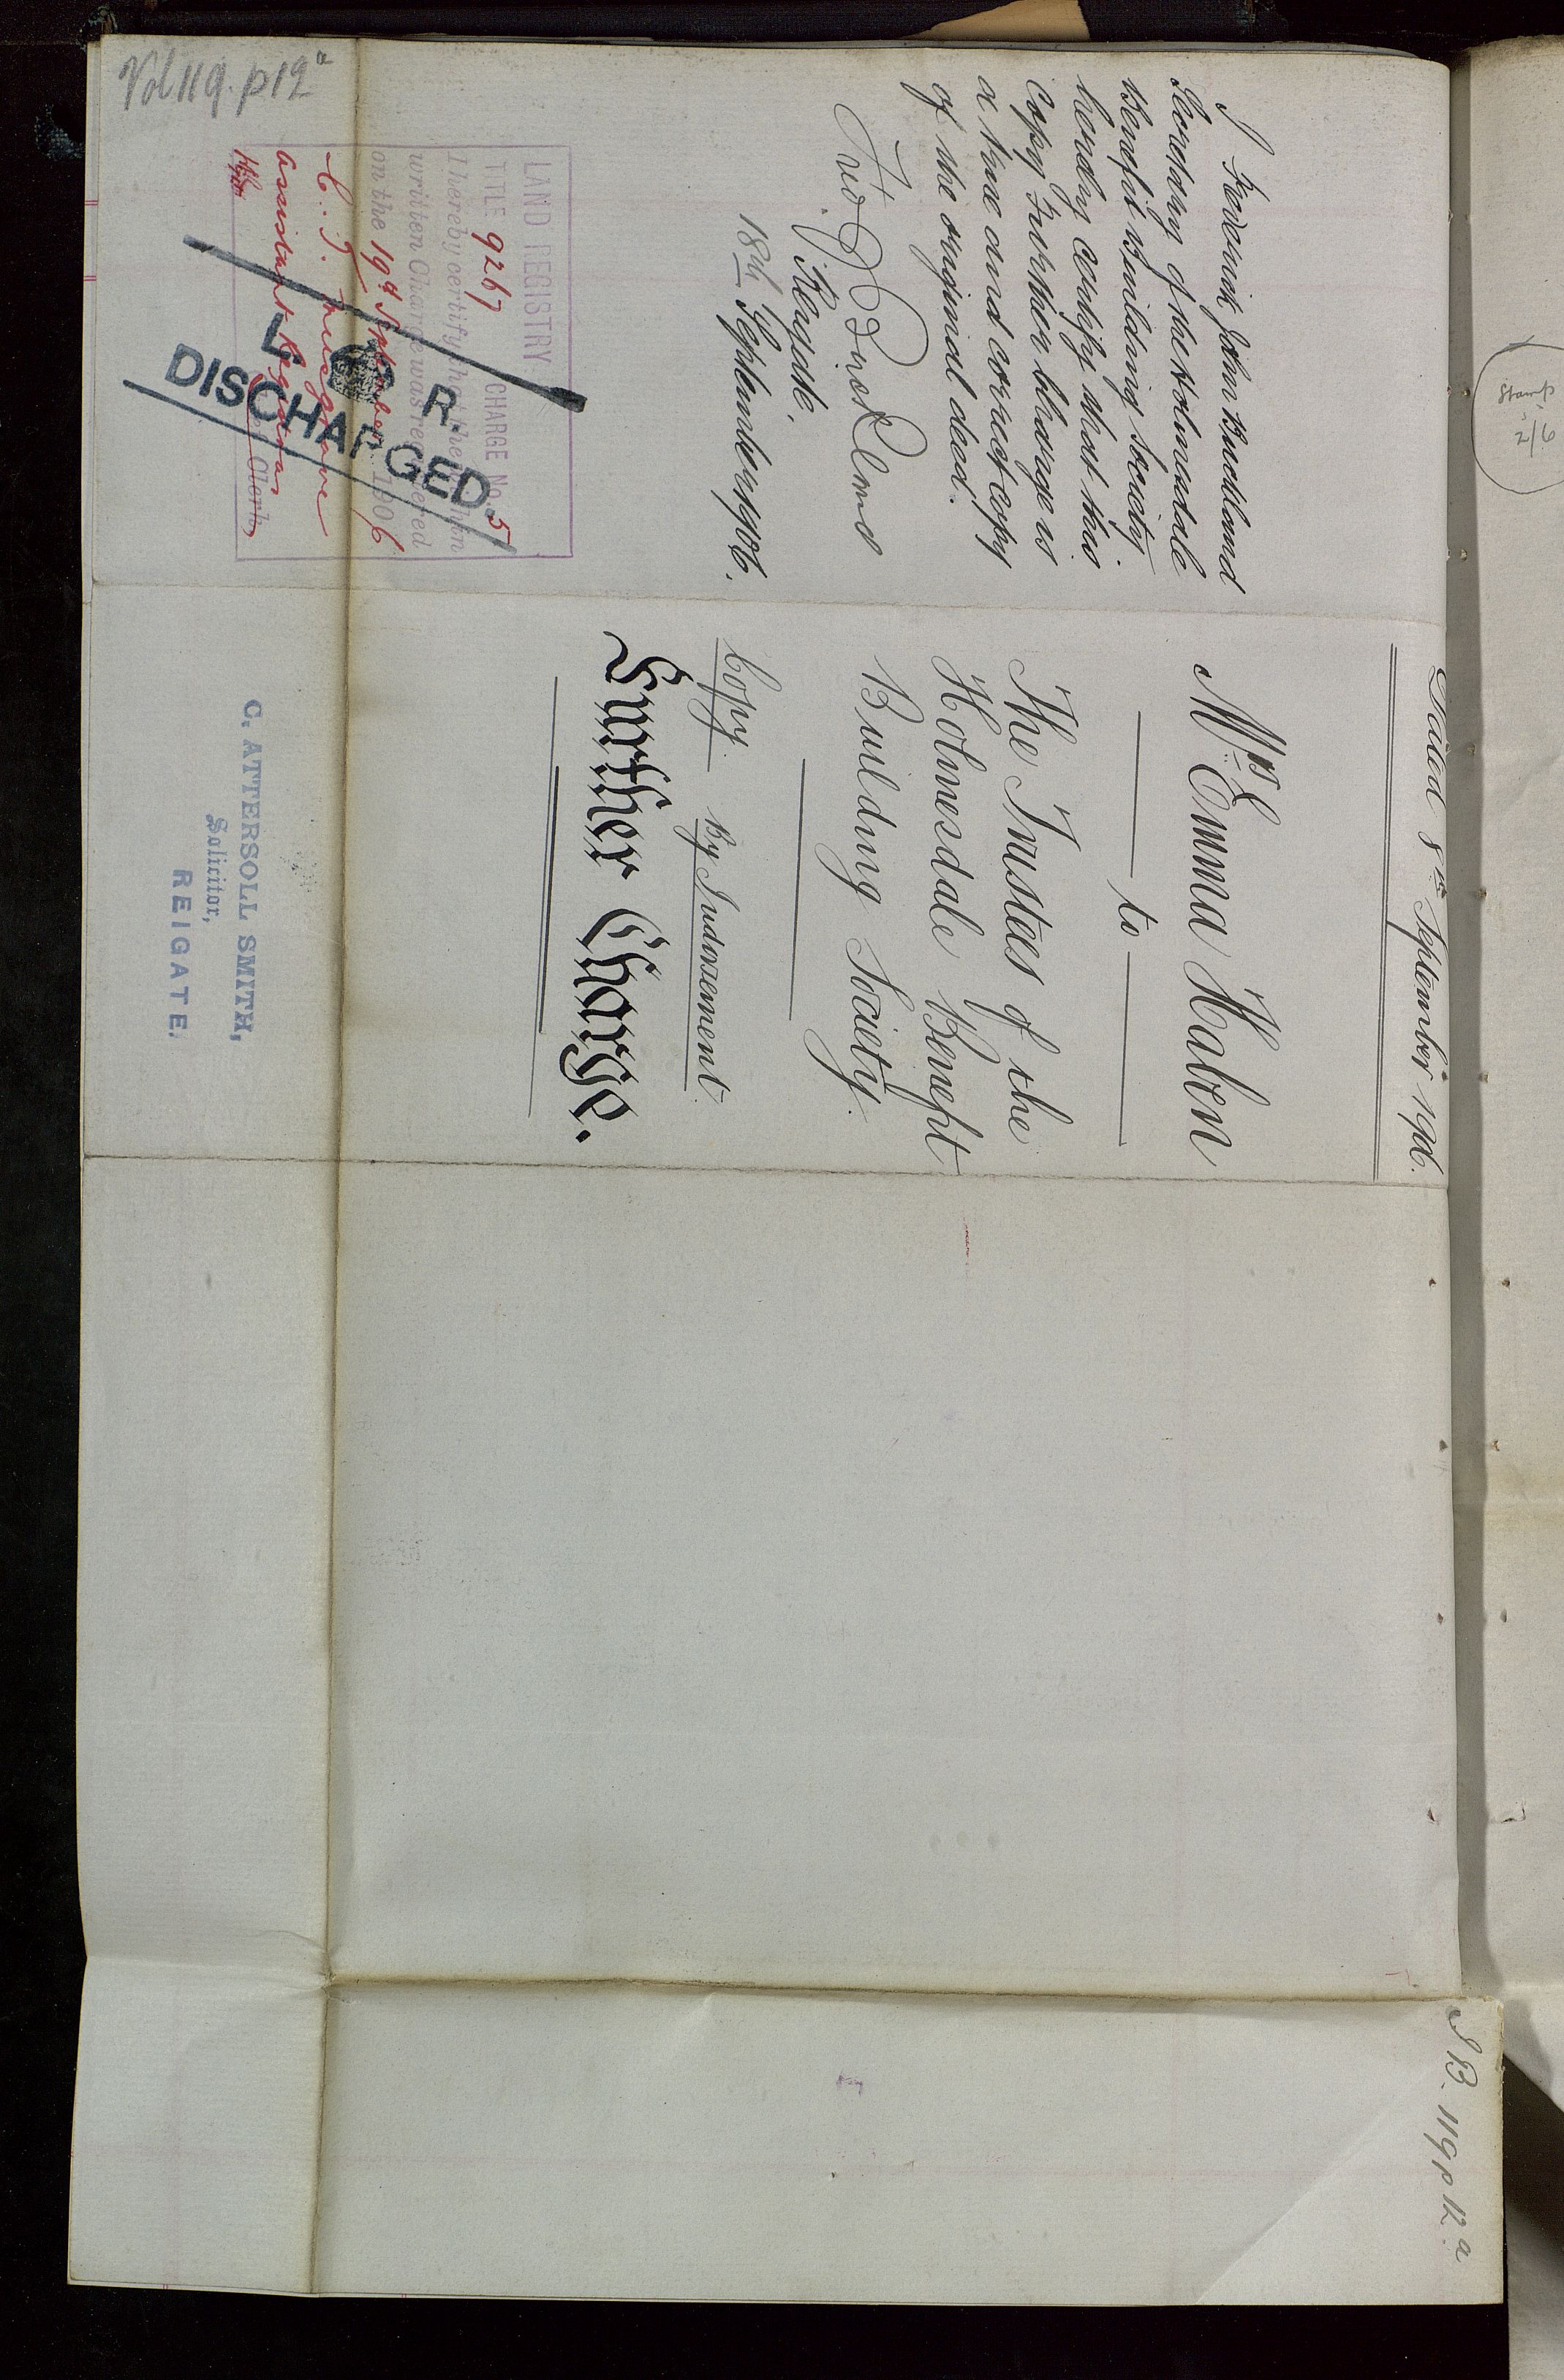 Vol 119. p 12a
I Frederick John Buckland
Secretary of the Holmesdale
Benefit Building Society
hereby certify that this
Copy Further Charge is
a true and correct copy
of the original deed.
Fred J Buckland
Reigate.
18th September 1906.
LAND REGISTRY
TITLE 9267 CHARGE No. 5
I hereby certify that the within
written Charge was registered
on the 19th September 1906
Assistant Registrar
L. R.
DISCHARGED
Dated 8th September 1906.
Mrs Emma Haben
to
The Trustees of the
Holmesdale Benefit
Building Society.
Copy By Indorsement
Further Charge.
C. ATTERSOLL SMITH,
Solicitor,
REIGATE.
Stamp
2/6
I B. 119 p 12a